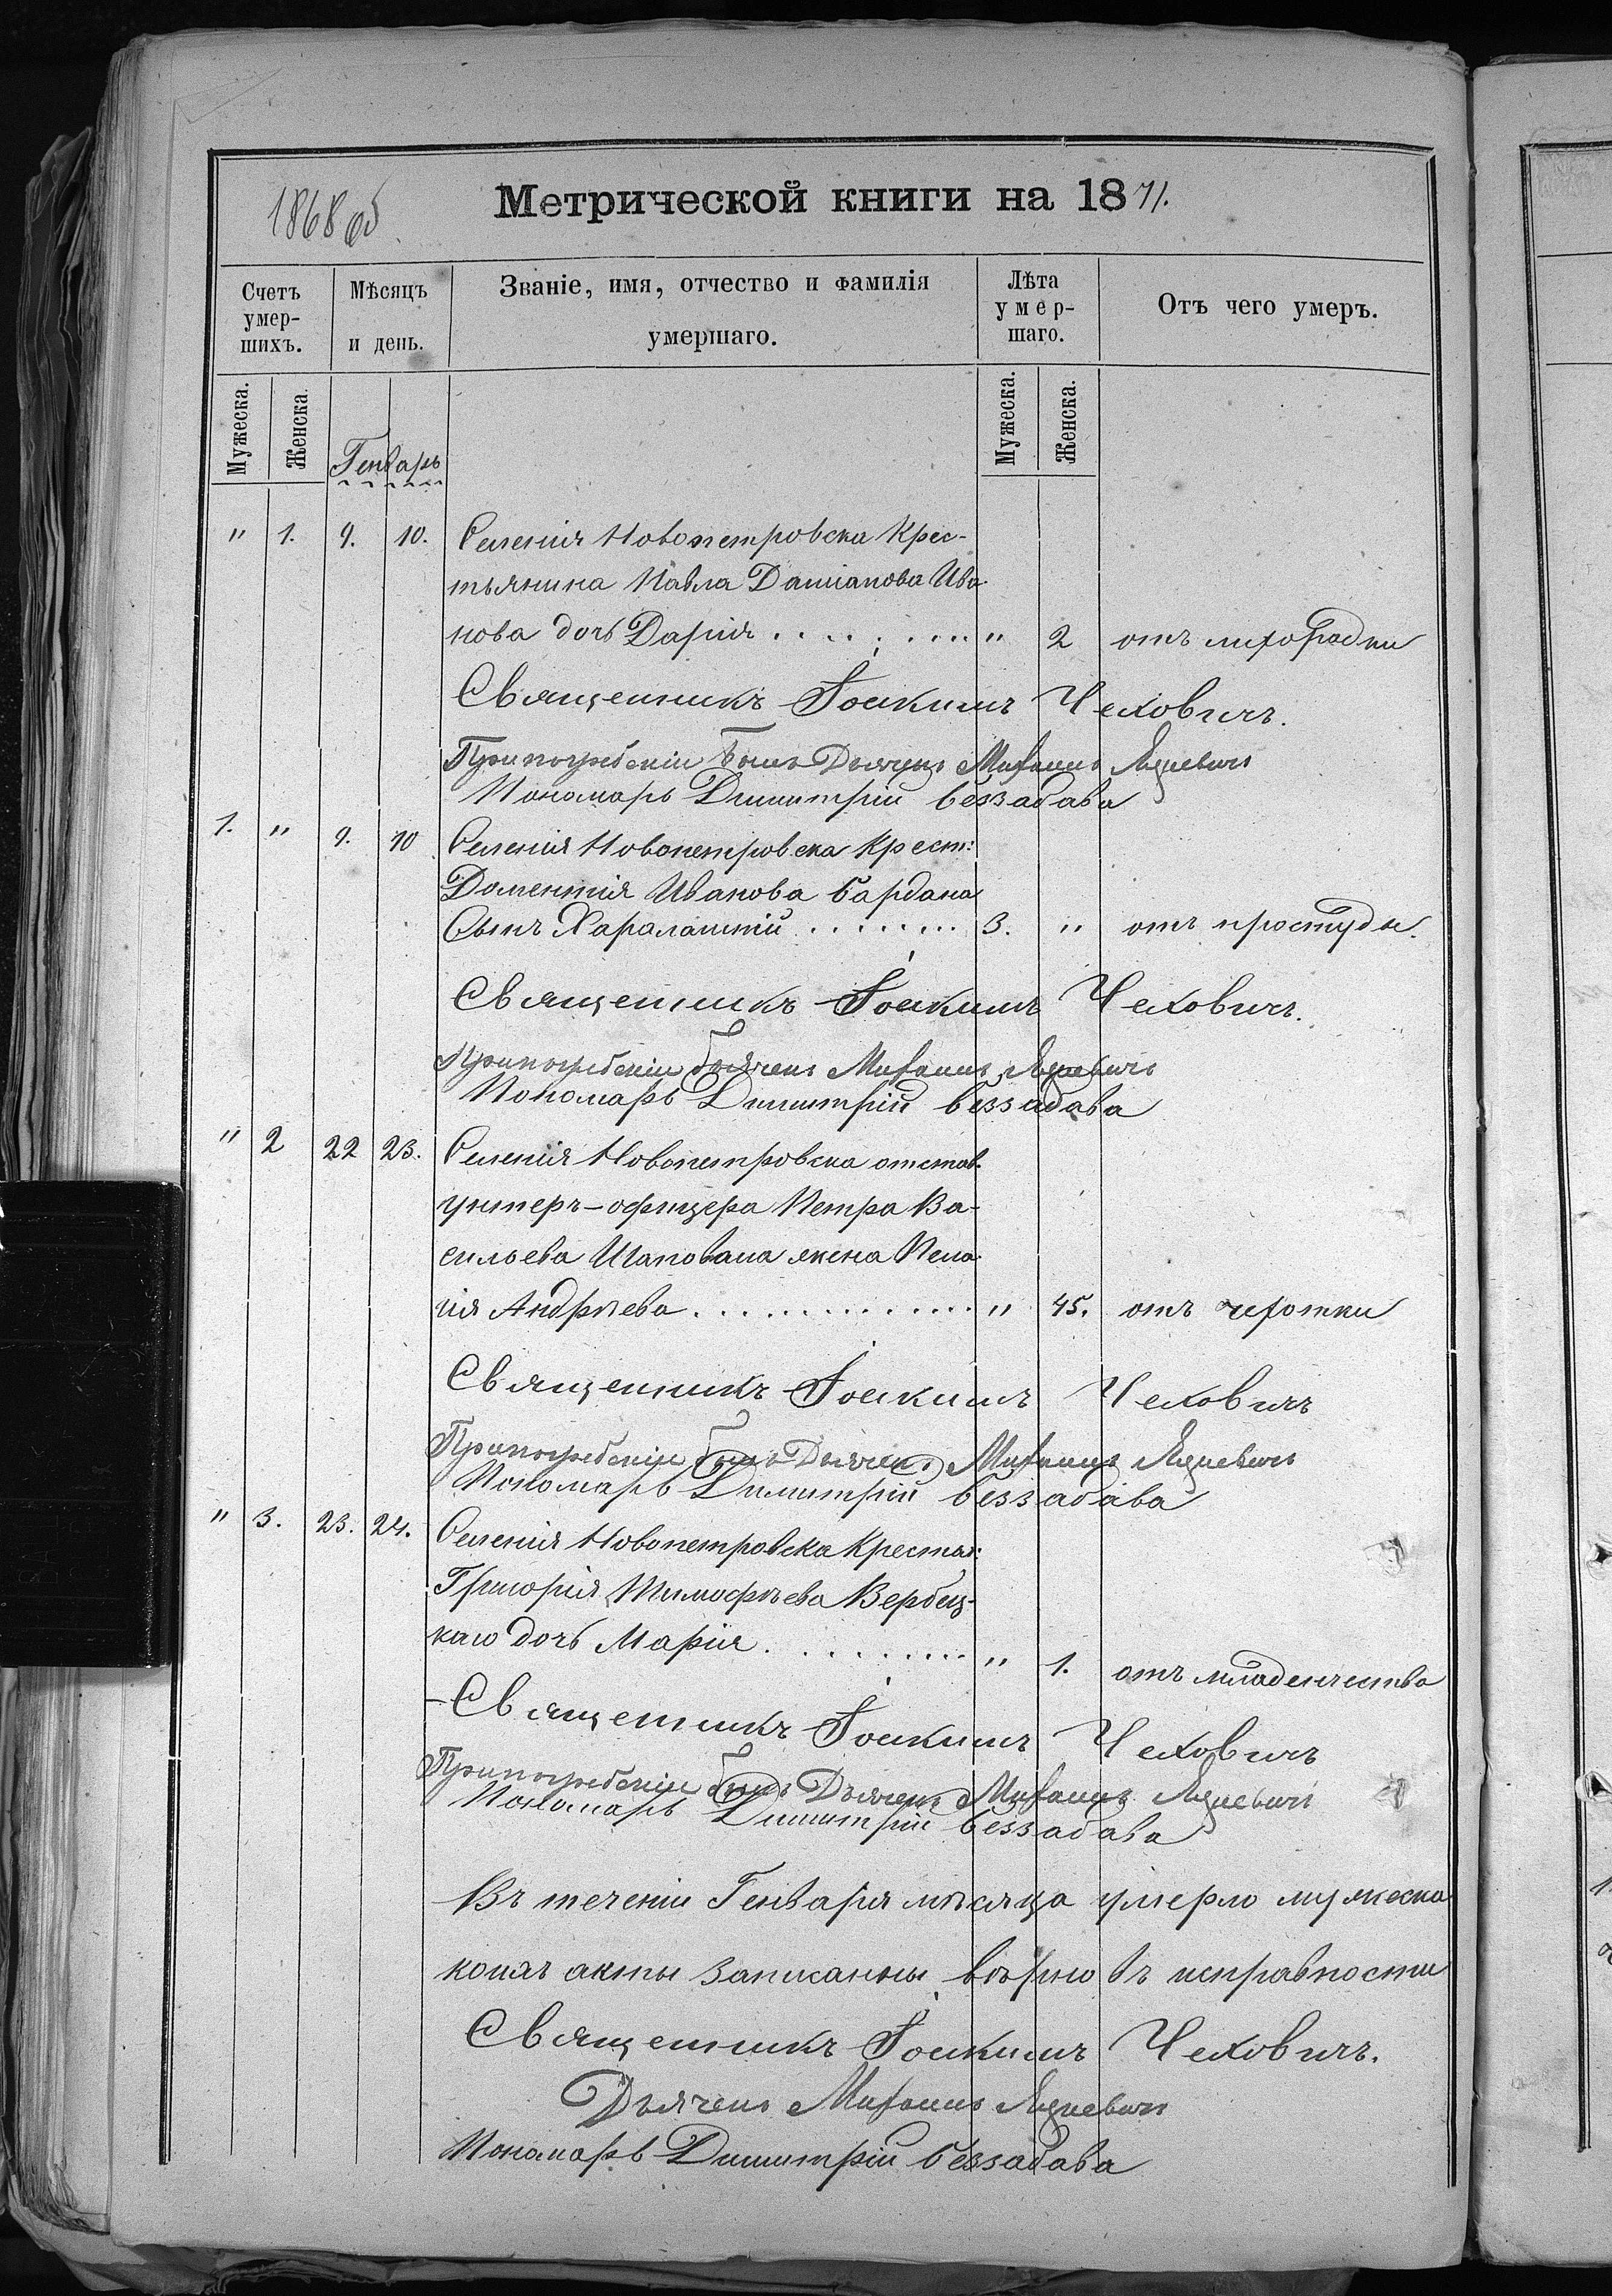 1868 об
Метрической книги на 1871.
Счетъ умер-шихъ.
Мѣсяцъ и день.
Званіе, имя, отчество и фамилія умершаго.
Лѣта умер-шаго.
Отъ чего умеръ.
Мужеска.
Женска.
Генварь
Мужеска.
Женска.
" 1. 9. 10. Селенія Новопетровска Крес-
тьянина Павла Даміанова Ива-
нова дочь Дарія . . . . . . . . . " 2 отъ лихорадки
Священникъ Іоакимъ Чеховичъ.
При погребеніи былъ Дьячекъ Михаилъ Яцневичъ
Пономарь Димитрій Беззабава
1. " 9. 10 Селенія Новопетровска Крест:
Доментія Иванова Бардана
Сынъ Харалампій . . . . . . . . 3. " отъ простуды.
Священникъ Іоакимъ Чеховичъ.
При погребеніи Дьячекъ Михаилъ Яцневичъ
Пономарь Димитрій Беззабава
" 2 22 23. Селенія Новопетровска отстав.
унтеръ-офицера Петра Ва-
сильева Шаповала жена Пела-
гія Андрѣева . . . . . . . . . . . . . " 45. отъ чехотки
Священникъ Іоакимъ Чеховичъ
При погребеніи былъ Дьячекъ Михаилъ Яцневичъ
Пономарь Димитрій Беззабава
" 3. 23. 24. Селенія Новопетровска Крестья:
Григорія Тимофѣева Вербец-
каго дочь Марія . . . . . . . . . " 1. отъ младенчества
Священникъ Іоакимъ Чеховичъ
При погребеніи былъ Дьячекъ Михаилъ Яцневичъ
Пономарь Димитрій Беззабава
Въ теченіи Генваря мѣсяца умерло мужеска
коихъ акты записанны вѣрно въ исправности
Священникъ Іоакимъ Чеховичъ.
Дьячекъ Михаилъ Яцневичъ
Пономарь Димитрій Беззабава